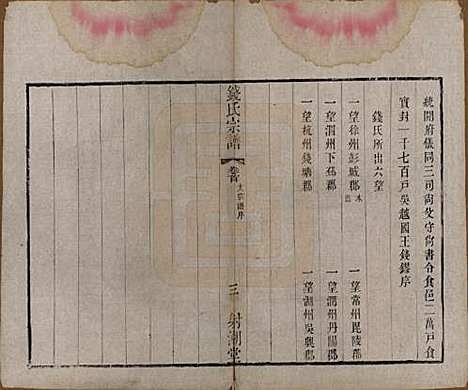 統開府儀同三司尚父守尚書令食邑二萬戸食
實封一千七百戸吳越國王錢鏐序
錢氏所出六望
一望徐州彭城郡 一望常州毘陵郡
一望泗州下邳郡 一望潤州丹陽郡
一望杭州錢塘郡 一望湖州吳興郡
錢氏宗譜 卷首 大宗譜序 三 射潮堂